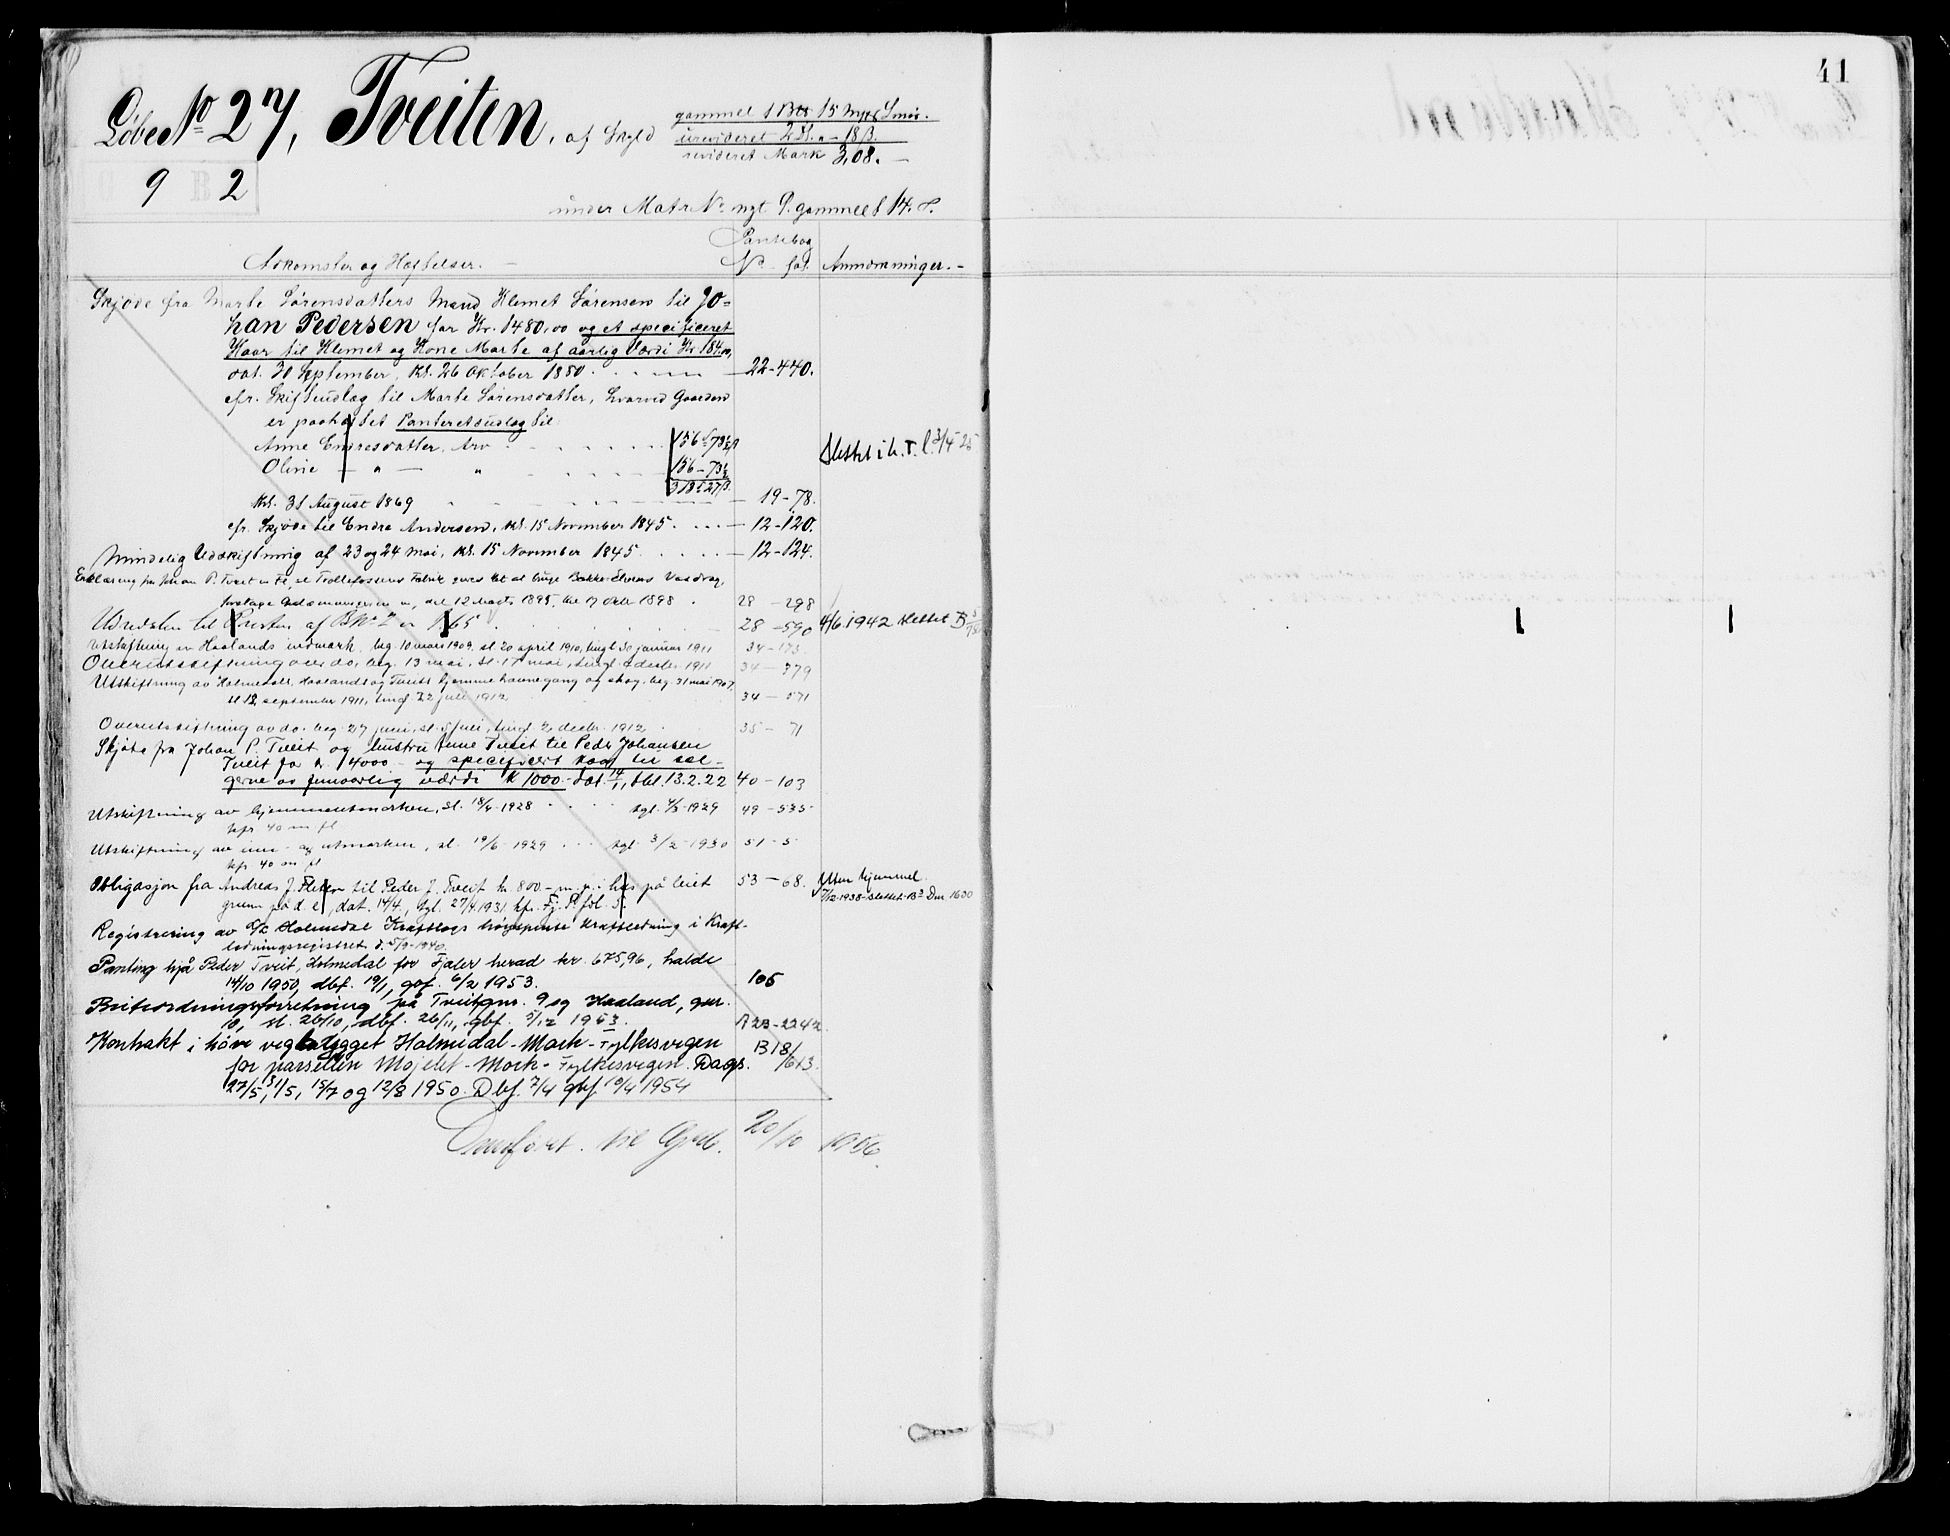 41
Løbe No 27, Tveiten, af Skyld
gammel 1 15 Smør.
urevideret 2 - 18 β.
revideret Mark 3,08. —
G 9 B 2
under Matr No nyt 9. gammelt 14.
Adkomster og Hæftelser. —
Pantebog
No fol.
Anmærkninger. —
Skjøde fra Marte Sørensdatters Mand Klemet Sørensen til Jo-
han Pedersen for Kr. 1480,00 og et specificeret
Kaar til Klemet og Kone Marte af aarlig Værdi Kr 184,00,
dat. 30 September, tkl. 26 Oktober 1880 22-440.
cfr. Skifteudlæg til Marte Sørensdatter, hvorved Gaarden
er paaheftet Panteretsudlæg til
Anne Endresdatter, Arv 156 73½
Oline — " — " 156-73½
313 27 β. Slettet i h. t. l. 3/4 25
tkl. 31 August 1869 19-78.
cfr. Skjøde til Endre Andersen, tkl. 15 November 1845 12-120.
Mindelig Udskiftning af 23 og 24 Mai, tkl. 15 November 1845 12-124.
Erklæring fra Johan P. Tveit m. fl., at Trollefossens Fabrik gives Ret at bruge Bakke-Elvens Vasdrag,
foretage m, dat 12 Marts 1895, tkl 17 1898 28-298
Udredsler til Presten af BNo 2 er 1,65 28-590 4/6 1942 slettet B
Utskiftning av Haalands indmark, beg. 10 mars 1909, sl. 20 april 1910, tingl. 30 januar 1911 34-173
Overutskiftning over do, beg. 13 mai, sl. 17 mai, tingl. decbr. 1911 34-379
Utskiftning av Holmedals, Haalands og Tveits hjemmehavnegang og skog, beg. 31 mai 1907,
sl 12 september 1911, tingl. 22 juli 1912 34-571
Overutskiftning av do. beg. 27 juni, sl. 5 juli, tingl. 2 decbr. 1912 35-71
Skjøte fra Johan P. Tveit og hustru Anne Tveit til Peder Johansen
Tveit for kr. 14000 - og specificert kaar til sæl-
gerne av femaarlig værdi k 1000.- dat. 14/1, tbl. 13.2.22 40-103
Utskiftning av hjemmeutmarken, sl. 18/6-1928 tgl. 4/3-1929 49-535
hfr 40 m fl
Utskiftning av inn- og utmarken, sl. 19/6-1929 tgl. 3/2-1930 51-5
hfr 40 m fl
Obligasjon fra Andreas J. Fleten til Peder J. Tveit kr. 800.- m. p. i hus på leiet 53-68. Uten hjemmel
grunn på d. e., dat. 14/4, tgl. 27/4 1931. hfr. Fj. P. fol. 5. 7/12-1938-slettet-B3 Dnr 1600
Registrering av a/s Holmedal Kraftlags høyspente kraftledning i Kraft-
ledningsregistret d. 5/9-1940.
Panting hjå Peder Tveit, Holmedal for Fjaler herad kr. 675,96, halde
14/10 1950, dbf. 19/1, gbf. 6/2 1953. 105
Bruksordningsforretning på Tveit gnr. 9 og Haaland, gnr.
10, sl. 26/10, dbf. 26/11, gbf. 5/12 1953. A 23-2242
Kontrakt i høve veganlegget Holmedal-Mork-Fylkesvegen B 18/613.
for parsellen Mojelet-Mork-Fylkesvegen. Dags.
27/5, 31/5, 15/7 og 12/8 1950. Dbf. 7/4 gbf 10/4 1954
Omført til Gr.b. 20/10 1956.